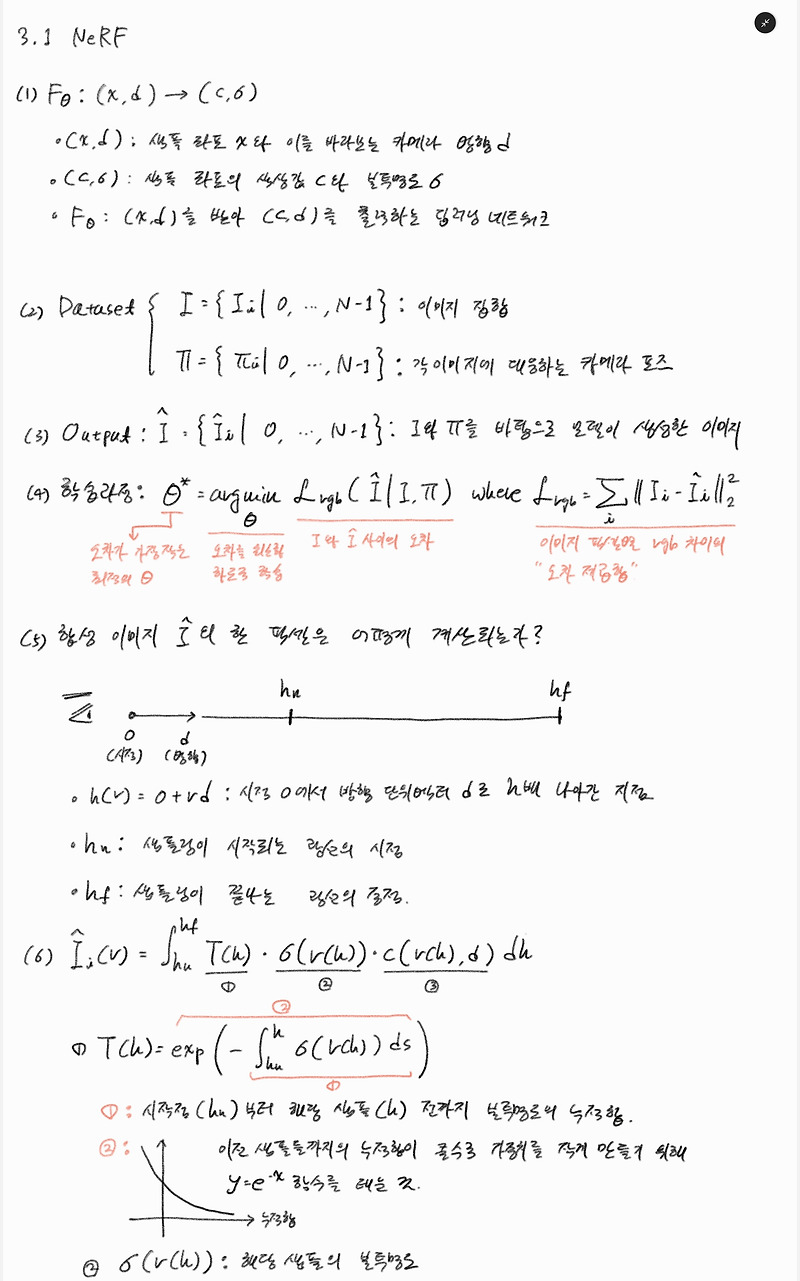 3.1 NeRF
(1) Fθ : (x,d) → (c,σ)
• (x,d) : 샘플 좌표 x와 이를 바라보는 카메라 방향 d
• (c,σ) : 샘플 좌표의 색상값 c와 불투명도 σ
• Fθ : (x,d)를 받아 (c,d)를 출력하는 딥러닝 네트워크
(2) Dataset { I = {Ii | 0, ..., N-1} : 이미지 집합
π = {πi | 0, ..., N-1} : 각 이미지에 대응하는 카메라 포즈
(3) Output : Î = {Îi | 0, ..., N-1} : I와 π를 바탕으로 모델이 생성한 이미지
(4) 학습과정: θ* = argmin θ Lrgb(Î | I, π) where Lrgb = Σi ‖Ii - Îi‖₂²
오차가 가장 작은 최적의 θ
오차를 최소화 하도록 학습
I와 Î 사이의 오차
이미지 픽셀별 rgb 차이의
"오차 제곱합"
(5) 합성 이미지 Î의 한 픽셀은 어떻게 계산되는가?
hn hf
o d
(시점) (방향)
• h(r) = o + rd : 시점 o에서 방향 단위벡터 d로 h배 나아간 지점
• hn : 샘플링이 시작되는 광선의 시점
• hf : 샘플링이 끝나는 광선의 종점.
(6) Îi(r) = ∫hn^hf T(h) · σ(r(h)) · c(r(h), d) dh
① ② ③
②
① T(h) = exp(-∫hn^h σ(r(h)) ds)
①
① : 시작점(hn)부터 해당 샘플(h) 전까지 불투명도의 누적합.
② : 이전 샘플들까지의 누적합이 클수록 가중치를 작게 만들기 위해
y=e^-x 함수를 태운 것.
누적합
② σ(r(h)) : 해당 샘플의 불투명도